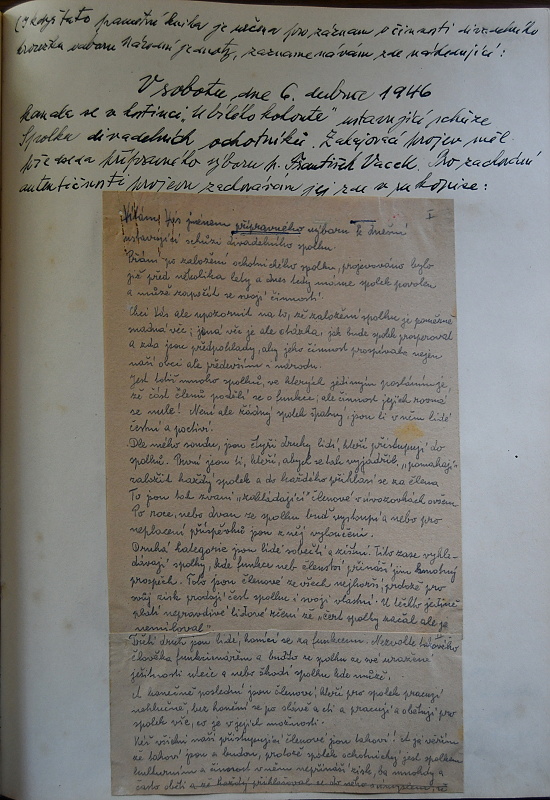 tato pamětní kniha je určena pro záznam o činnosti divadelního
kroužku odboru Národní jednoty, zaznamenávám zde následující:
V sobotu, dne 6. dubna 1946
konala se v hostinci „U bílého kohouta" ustavující schůze
Spolku divadelních ochotníků. Zahajovací projev měl
předseda přípravného výboru p. František Vacek. Pro zachování
autentičnosti projevu zachovávám jej zde v jeho kopii:
I
Vítám Vás jménem přípravného výboru k dnešní
ustavující schůzi divadelního spolku.
Přání po založení ochotnického spolku, projevováno bylo
již před několika lety a dnes tedy máme spolek povolen
a může započít se svojí činností.
Chci Vás ale upozornit na to, že založení spolku je poměrně
snadná věc; jiná věc je ale otázka, jak bude spolek prosperovat
a zda jsou předpoklady, aby jeho činnost prospívala nejen
naší obci ale především i národu.
Jest totiž mnoho spolků, ve kterých jediným posláním je,
že část členů podělí se o funkce, ale činnost jejich rovná
se nule! Není ale žádný spolek špatný, jsou-li v něm lidé
čestní a poctiví.
Dle mého soudu, jsou čtyři druhy lidí, kteří přistupují do
spolků. První jsou ti, kteří, abych se tak vyjádřil, „pomáhají"
založit každý spolek a do každého přihlásí se za člena.
To jsou tak zvaní „zakládající" členové v úvozovkách ovšem.
Po roce, nebo dvou ze spolku buď vystoupí a nebo pro
neplacení příspěvků jsou z něj vyloučeni.
Druhá kategorie jsou lidé sobečtí a zištní. Tito zase vyhle-
dávají spolky, kde funkce neb členství přináší jim hmotný
prospěch. Toto jsou členové ze všech nejhorší, protože pro
svůj zisk prodají čest spolku i svoji vlastní. U těchto jedině
platí nepravdivé lidové rčení že „čert spolky začal ale je
nemiloval".
Třetí druh jsou lidé, honící se za funkcemi. Nezvolte takového
člověka funkcionářem a buďto ze spolku ze své uražené
ješitnosti uteče a nebo škodí spolku kde může.
A konečně poslední jsou členové, kteří pro spolek pracují
nehlučně, bez honění se po slávě a cti a pracují a obětují pro
spolek vše, co je v jejich možnosti.
Kéž všichni naši přistupující členové jsou takoví! A já věřím
že takoví jsou a budou, protože spolek ochotnický jest spolkem
kulturním a činnost v něm nepřináší zisk, ba mnohdy a
často oběti a že každý přihlašoval se do něho